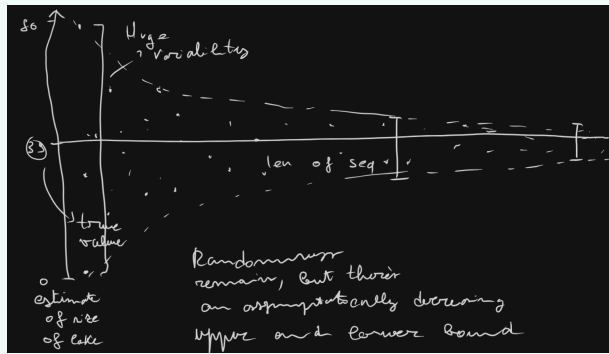 80
Huge
variability
39
len of seq
true
value
0
estimate
of size
of lake
Randomness
remain, but there's
an asymptotically decreasing
upper and lower bound